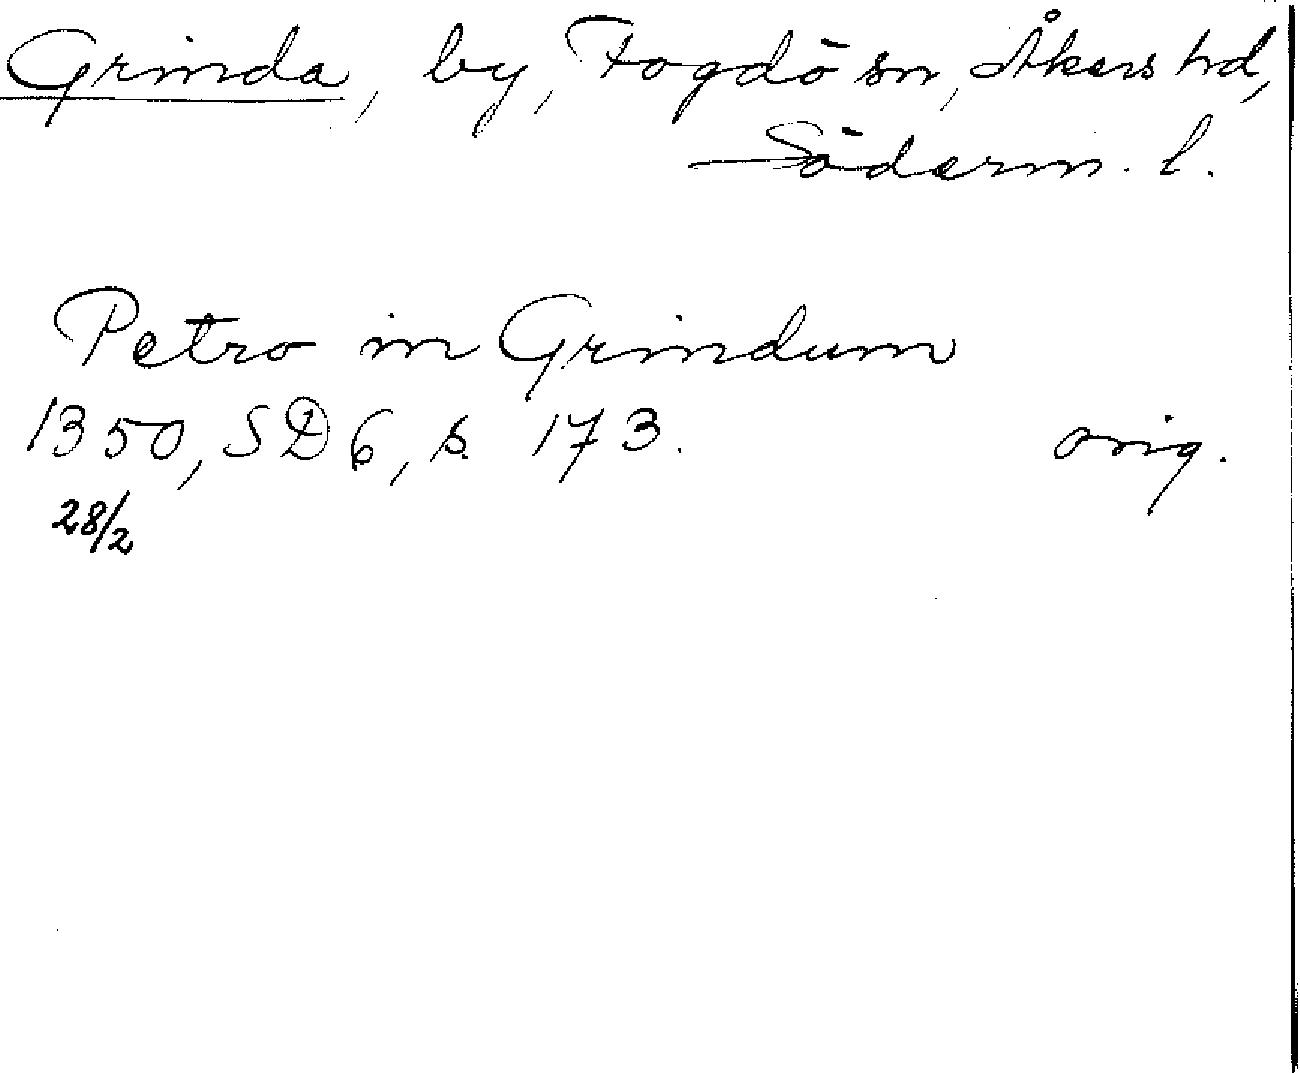 Grinda, by, Fogdö sn, Åkers hd,
Söderm. l.
Petro in Grindum
1350, SD 6, s. 173. orig.
28/2